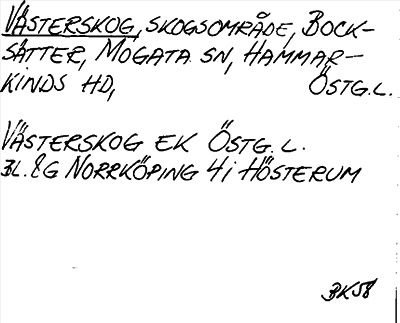 VÄSTERSKOG, SKOGSOMRÅDE, BOCK-
SÄTTER, MOGATA SN, HAMMAR-
KINDS HD, ÖSTG.L.
VÄSTERSKOG EK ÖSTG. L.
BL. 8G NORRKÖPING 4i HÖSTERUM
BK58